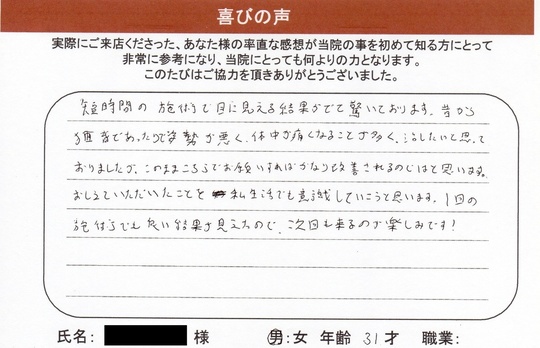 喜びの声
実際にご来店くださった、あなた様の率直な感想が当院の事を初めて知る方にとって
非常に参考になり、当院にとっても何よりの力となります。
このたびはご協力を頂きありがとうございました。
短時間の施術で目に見える結果がでて驚いております。昔から
猫背であったり姿勢が悪く、体中が痛くなることが多く、治したいと思って
おりましたが、このままこちらでお願いすればかなり改善されるのではと思います。
おしえていただいたことを私生活でも意識していこうと思います。1回の
施術でも良い結果が見えたので、次回も来るのが楽しみです!
氏名: 様 男:女 年齢 31才 職業: